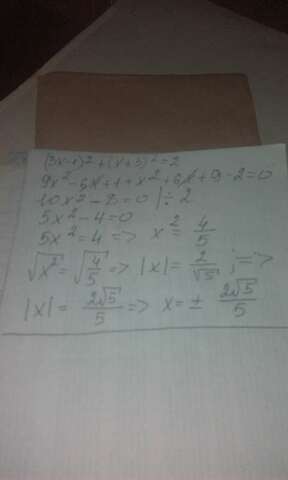 (3x-1)²+(x+3)²=2
9x²-6x+1+x²+6x+9-2=0
10x²-8=0 |÷2
5x²-4=0
5x²=4 => x²=4/5
√x²=√4/5 => |x|=2/√5; =>
|x|=2√5/5 => x=± 2√5/5